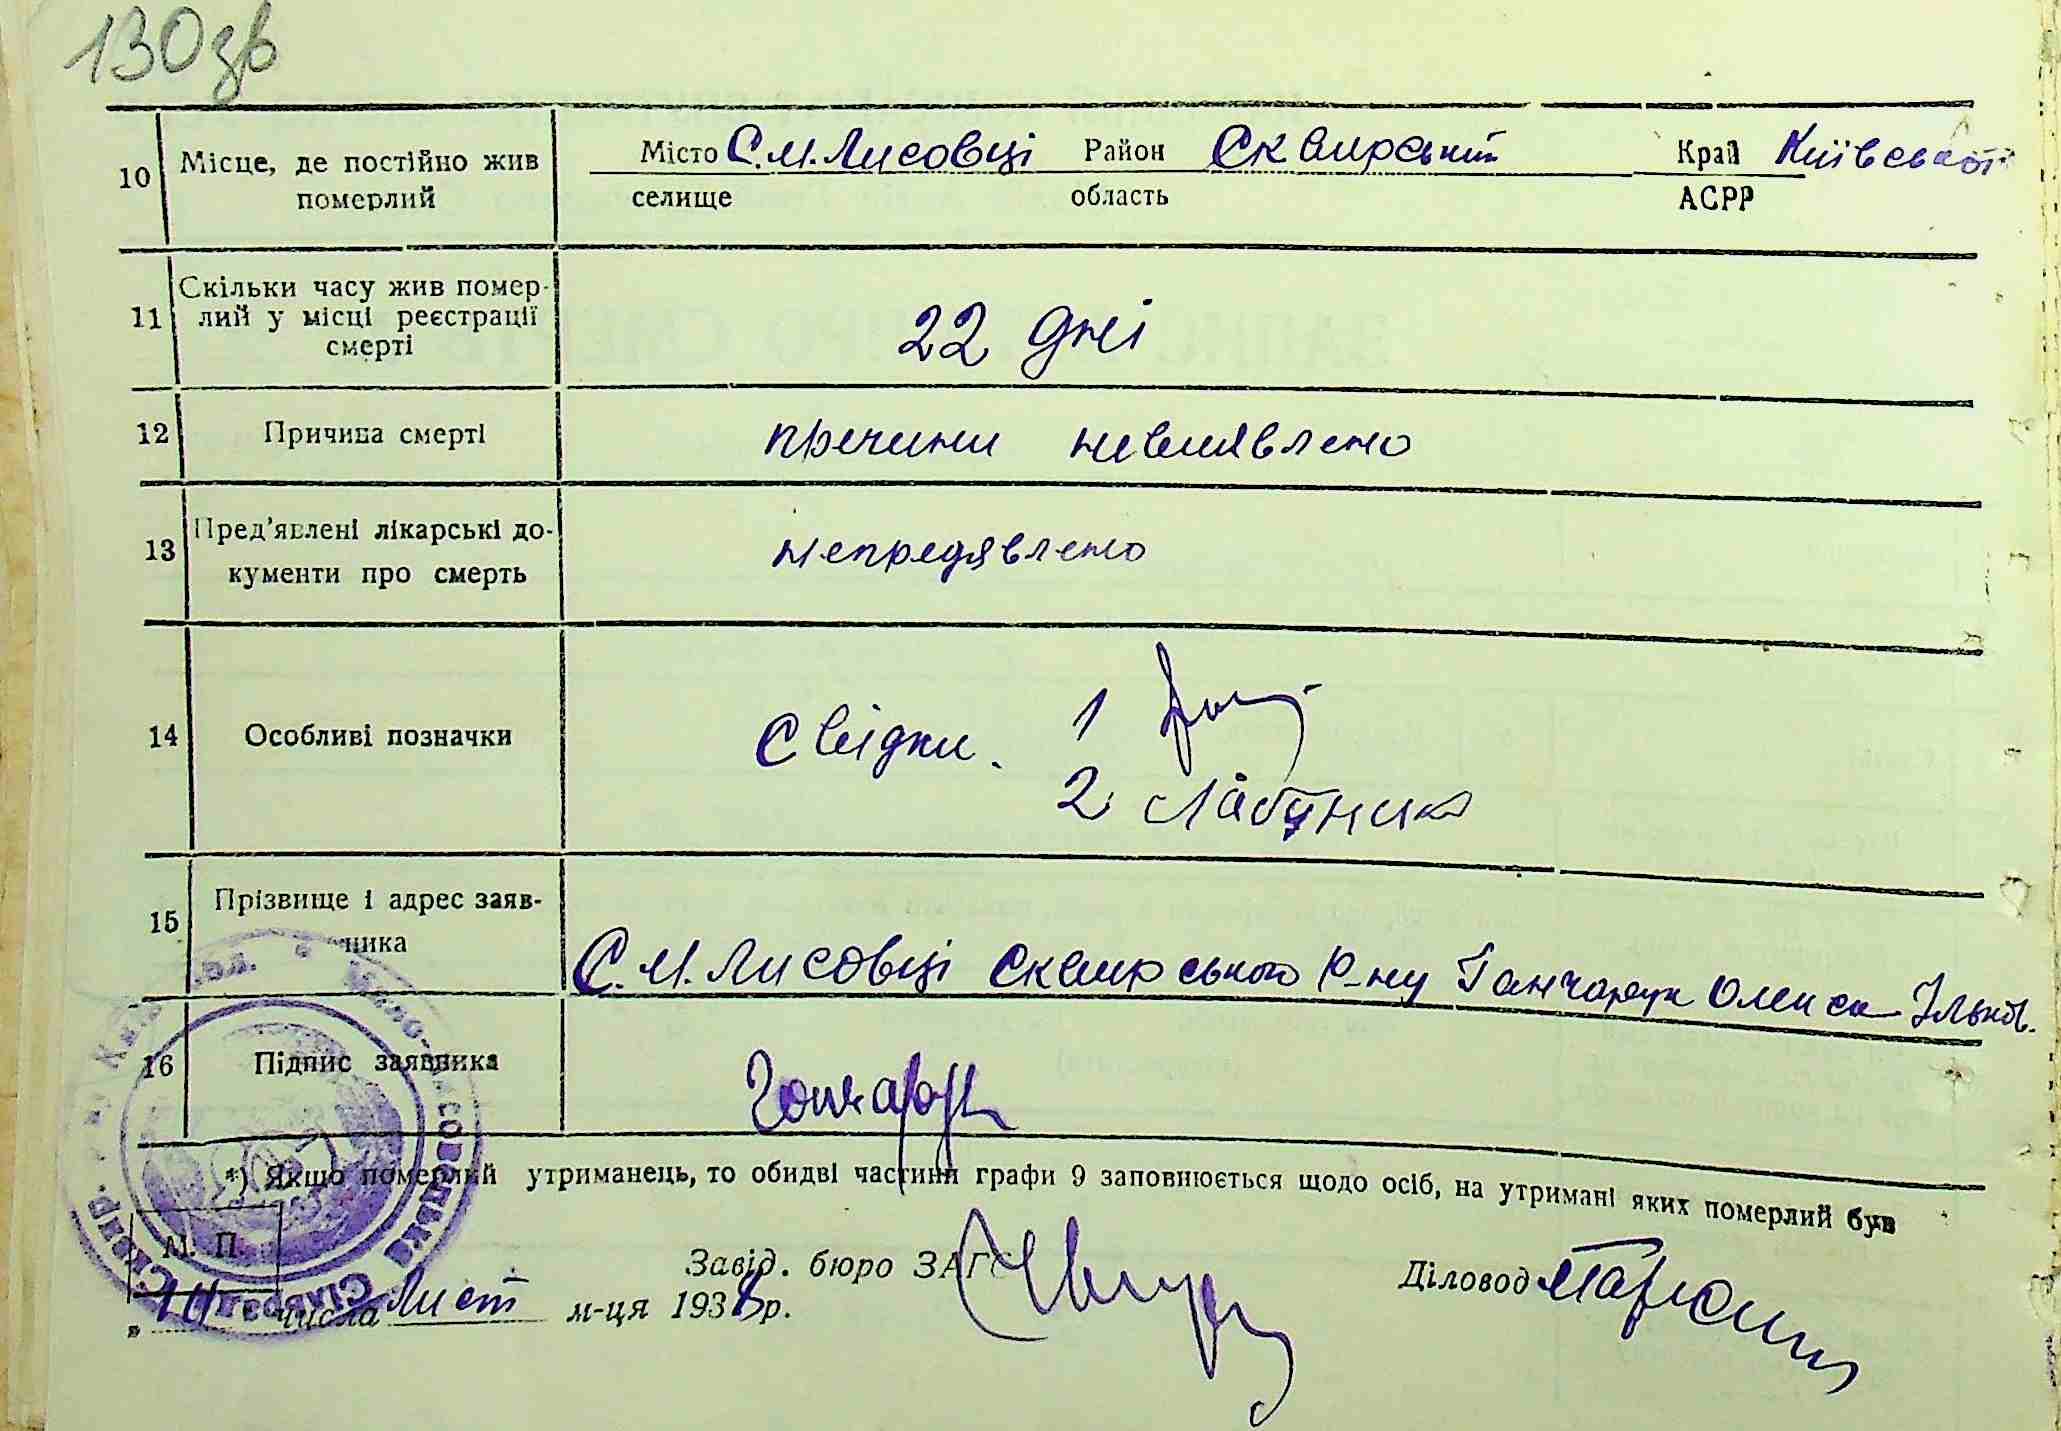 130зв
10 Місце, де постійно жив померлий
Місто С. М. Лисовці Район Сквирський Край Київської
селище область АСРР
11 Скільки часу жив помер-
лий у місці реєстрації
смерті
22 дні
12 Причина смерті
пречини невиявлено
13 Пред'явлені лікарські до-
кументи про смерть
непредявлено
14 Особливі позначки
Свідки. 1
2 Лабуника
15 Прізвище і адрес заяв-
ника
С. М. Лисовці Сквирського р-ну Ганчарук Олекса Ільков.
16 Підпис заявника
Гончарук
*) Якщо померлий утриманець, то обидві частини графи 9 заповнюється щодо осіб, на утримані яких померлий був
М. П.
Завід. бюро ЗАГС
Діловод
" числа Лист м-ця 1938 р.